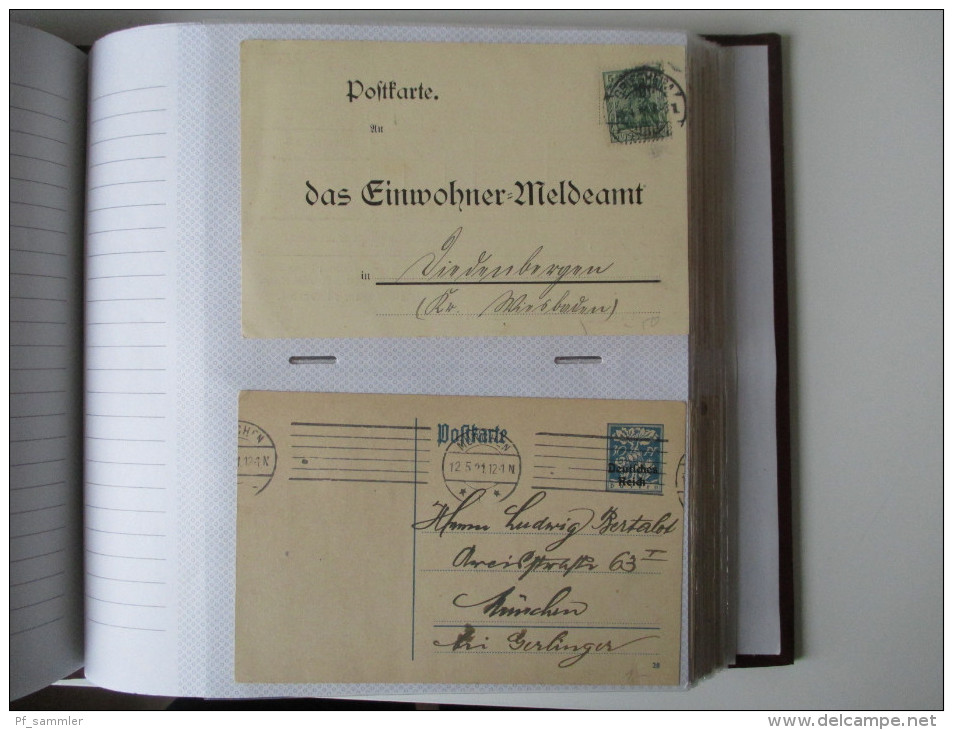 Postkarte.
An
5
das Einwohner=Meldeamt
in Diedenbergen
(Kr. Wiesbaden)
Postkarte
MÜNCHEN
12.5.21.12-1N
Deutsches
Reich
Herrn Ludwig Bertalot
Arcisstraße 63 I
München
bei Gerlinger
Pf_sammler
www.delcampe.net